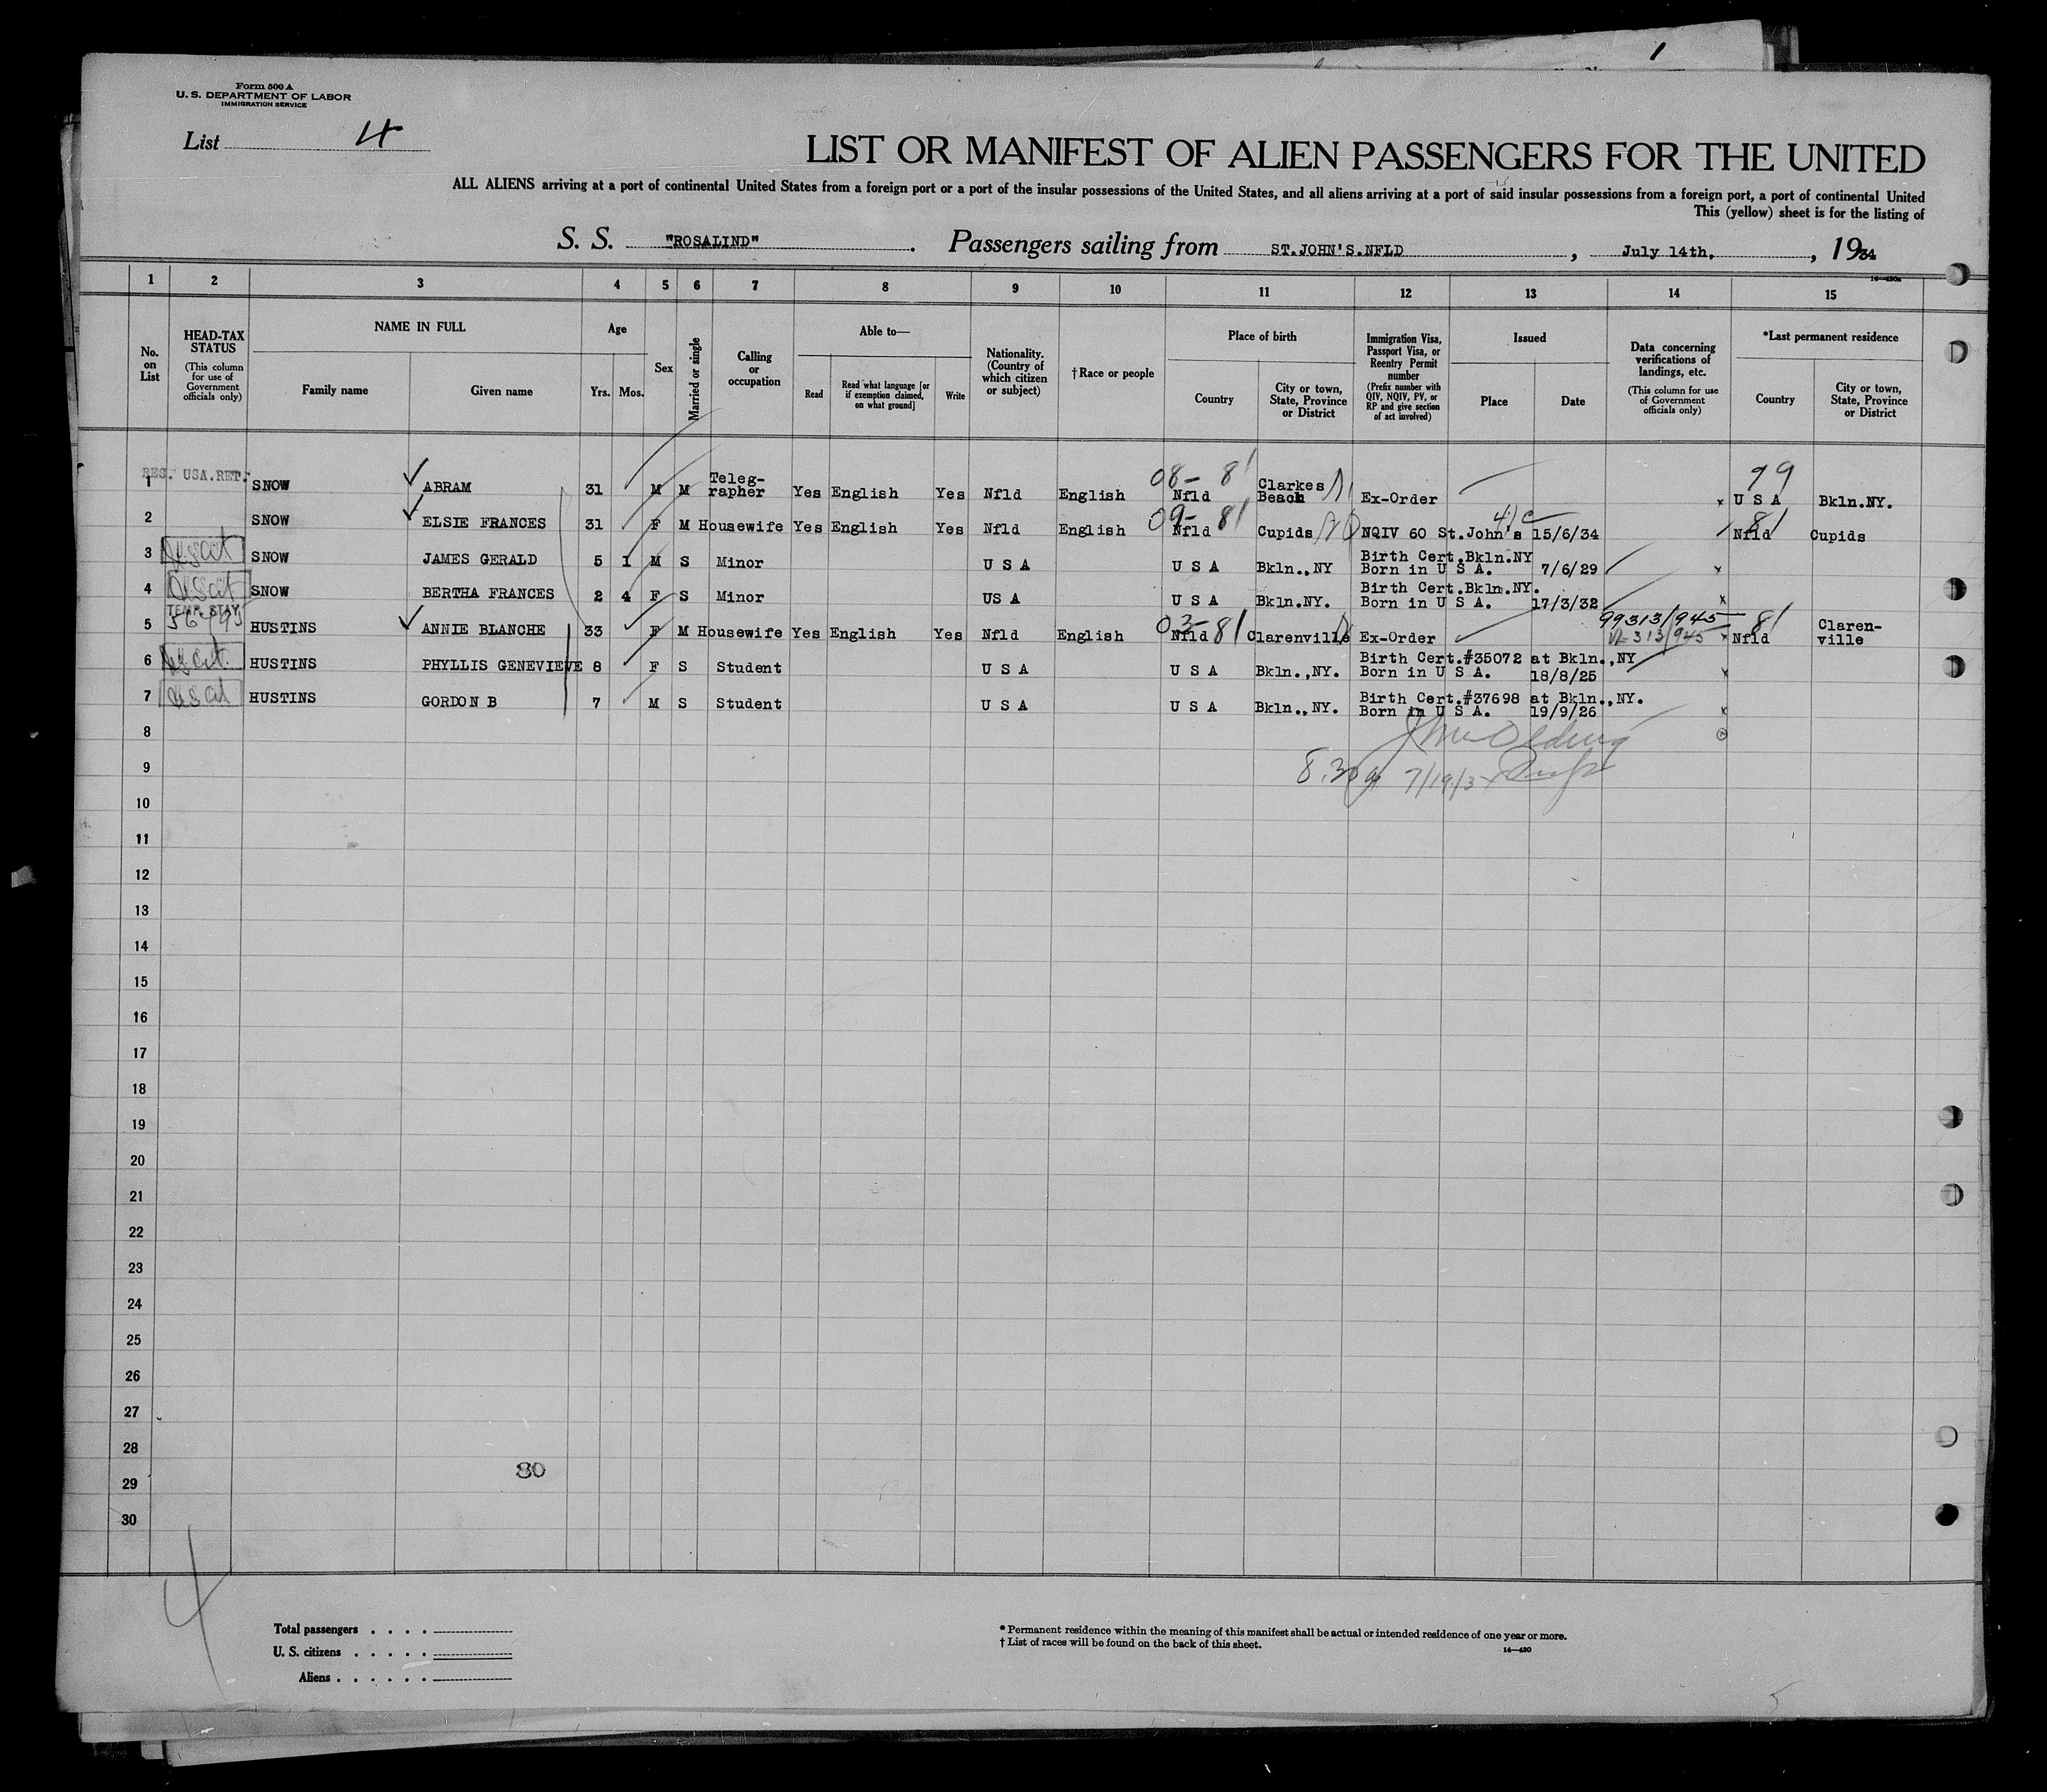 1
Form 500 A
U. S. DEPARTMENT OF LABOR
IMMIGRATION SERVICE
List 4
LIST OR MANIFEST OF ALIEN PASSENGERS FOR THE UNITED
ALL ALIENS arriving at a port of continental United States from a foreign port or a port of the insular possessions of the United States, and all aliens arriving at a port of said insular possessions from a foreign port, a port of continental United
This (yellow) sheet is for the listing of
S. S. "ROSALIND" . Passengers sailing from ST.JOHN'S.NFLD , July 14th, , 1934
14—430a
1 2 3 4 5 6 7 8 9 10 11 12 13 14 15
No. on List
HEAD-TAX STATUS (This column for use of Government officials only)
NAME IN FULL Family name Given name
Age Yrs. Mos.
Sex
Married or single
Calling or occupation
Able to— Read Read what language [or if exemption claimed, on what ground] Write
Nationality. (Country of which citizen or subject)
† Race or people
Place of birth Country City or town, State, Province or District
Immigration Visa, Passport Visa, or Reentry Permit number (Prefix number with QIV, NQIV, PV, or RP and give section of act involved)
Issued Place Date
Data concerning verifications of landings, etc. (This column for use of Government officials only)
*Last permanent residence Country City or town, State, Province or District
1 RES. USA.RET. SNOW ABRAM 31 M M Teleg-rapher Yes English Yes Nfld English 08- 81 Nfld Clarkes Beach Ex-Order x 99 U S A Bkln.NY.
2 SNOW ELSIE FRANCES 31 F M Housewife Yes English Yes Nfld English 09- 81 Nfld Cupids NQIV 60 St.John's 4/c 15/6/34 81 Nfld Cupids
3 SNOW JAMES GERALD 5 1 M S Minor U S A U S A Bkln., NY Birth Cert.Bkln.NY Born in U S A. 7/6/29 x
4 SNOW BERTHA FRANCES 2 4 F S Minor US A U S A Bkln.NY. Birth Cert.Bkln.NY. Born in U S A. 17/3/32 x
5 TEMP. STAY HUSTINS ANNIE BLANCHE 33 F M Housewife Yes English Yes Nfld English 03- 81 Nfld Clarenville Ex-Order 99313/945 313/945 x 81 Nfld Claren-ville
6 HUSTINS PHYLLIS GENEVIEVE 8 F S Student U S A U S A Bkln.,NY. Birth Cert.#35072 at Bkln.,NY Born in U S A. 18/8/25 x
7 HUSTINS GORDON B 7 M S Student U S A U S A Bkln.,NY. Birth Cert.#37698 at Bkln.,NY. Born in U S A. 19/9/26 x
8
9 8.30 7/19/34
10
11
12
13
14
15
16
17
18
19
20
21
22
23
24
25
26
27
28
80
29
30
4
Total passengers . . . .
U. S. citizens . . . . .
Aliens . . . . . .
* Permanent residence within the meaning of this manifest shall be actual or intended residence of one year or more.
† List of races will be found on the back of this sheet.
14—430
5